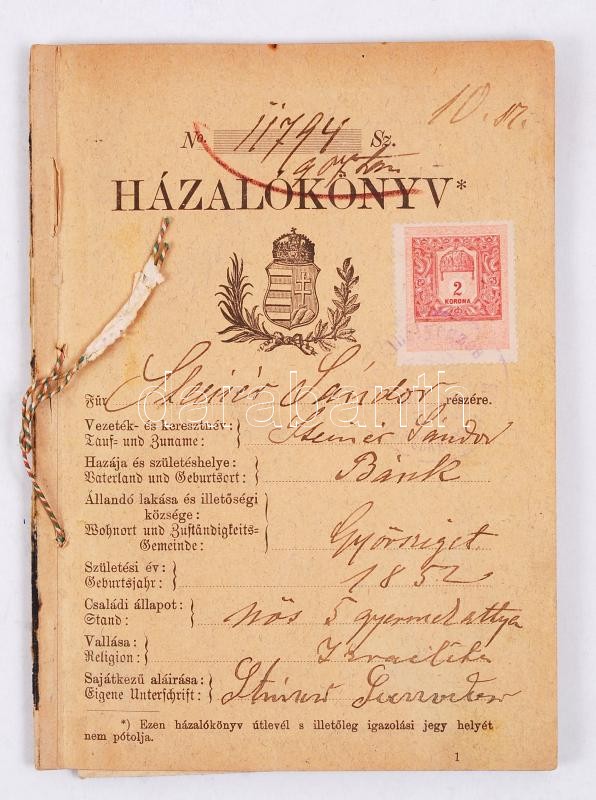 10.
No. 11794 Sz.
HÁZALÓKÖNYV*
2
KORONA
Für Steinér Sándor részére.
Vezeték- és keresztnév:
Tauf- und Zuname: Steinér Sándor
Hazája és születéshelye:
Vaterland und Geburtsort: Bánk
Állandó lakása és illetőségi
községe:
Wohnort und Zuständigkeits-
Gemeinde: Győrsziget
Születési év:
Geburtsjahr: 1852
Családi állapot:
Stand: nős 5 gyermek attya
Vallása:
Religion: Izraelita
Sajátkezű aláirása:
Eigene Unterschrift:
*) Ezen házalókönyv útlevél s illetőleg igazolási jegy helyét
nem pótolja.
1
darabanth